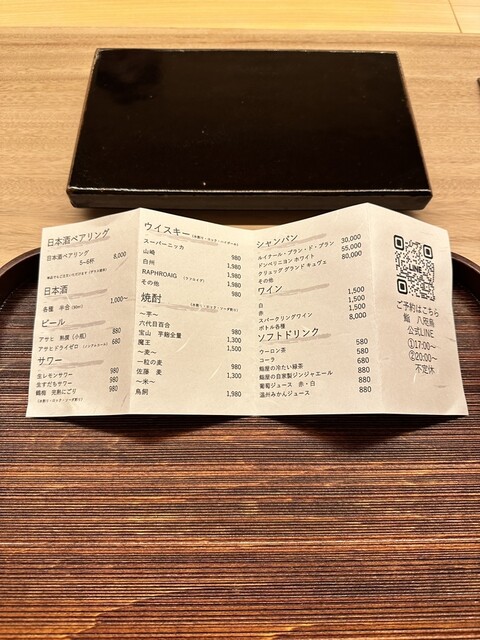 日本酒ペアリング
日本酒ペアリング
5~6杯 8,000
日本酒
各種 半合(90ml) 1,000~
ビール
アサヒ 熟撰(小瓶) 880
アサヒドライゼロ(ノンアルコール) 680
サワー
生レモンサワー 980
生すだちサワー 980
鶴梅 完熟にごり 980
(水割り・ロック・ソーダ割り)
ウイスキー(水割り・ロック・ハイボール)
スーパーニッカ 980
山崎 1,980
白州 1,980
RAPHROAIG 1,980
その他 980
焼酎(水割り・ロック・ソーダ割り)
~芋~
六代目百合 980
宝山 芋麹全量 1,300
魔王 1,500
~麦~
一粒の麦 980
佐藤 麦 1,300
~米~
鳥飼 980
シャンパン
ルイナール・ブラン・ド・ブラン 30,000
ドンペリニヨン ホワイト 55,000
クリュッグ グランド キュヴェ 80,000
その他
ワイン
白 1,500
赤 1,500
スパークリングワイン 1,500
ボトル各種 8,000
ソフトドリンク
ウーロン茶 580
コーラ 580
鮨屋の冷たい緑茶 680
鮨屋の自家製ジンジャエール 880
葡萄ジュース 赤・白 880
温州みかんジュース 880
LINE
ご予約はこちら
鮨 八咫烏
公式LINE
①17:00~
②20:00~
不定休